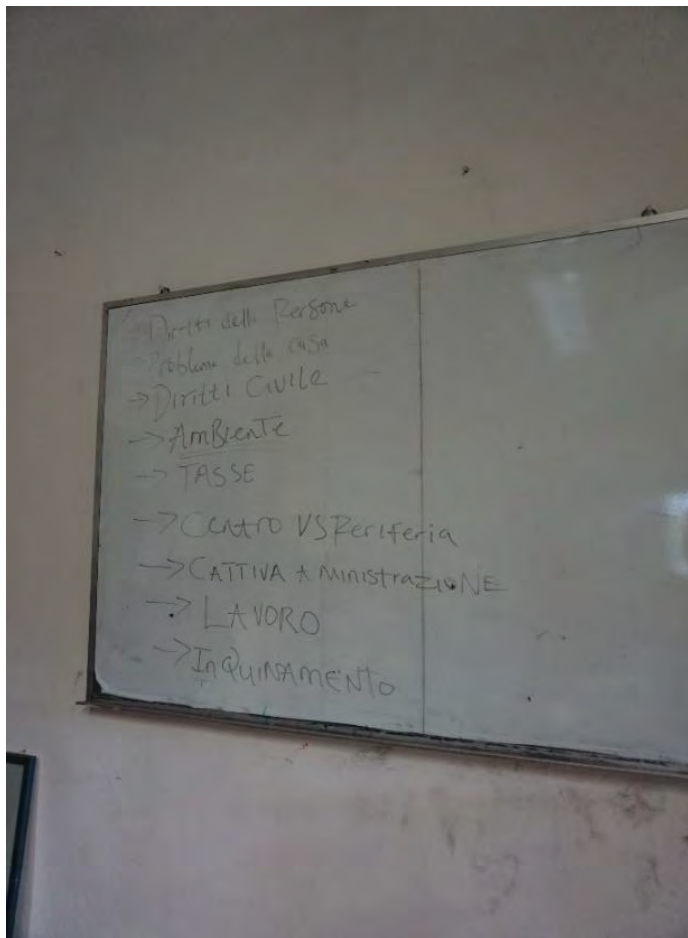 Diritti delle Persone
Problema della casa
→ Diritti Civile
→ AmBiente
→ TASSE
→ Centro VS Periferia
→ CATTIVA AministrazioNE
→ LAVORO
→ InQuiNAMENTO